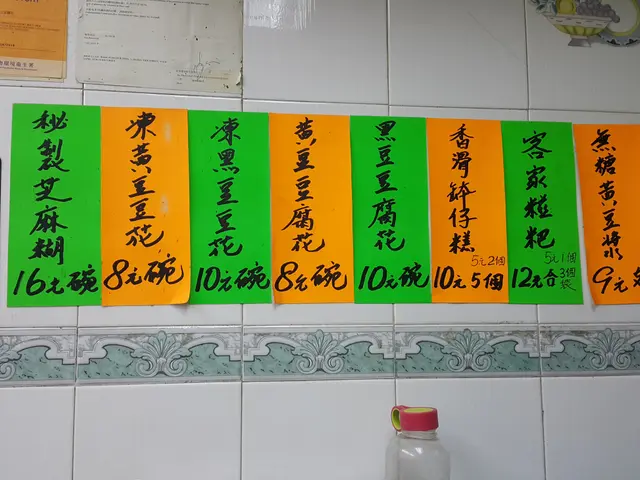 秘製芝麻糊
16元碗
凍黃豆豆花
8元碗
凍黑豆豆花
10元碗
黃豆豆腐花
8元碗
黑豆豆腐花
10元碗
香滑缽仔糕
5元2個
10元5個
客家糍粑
5元1個
12元合3個
無糖黃豆漿
9元